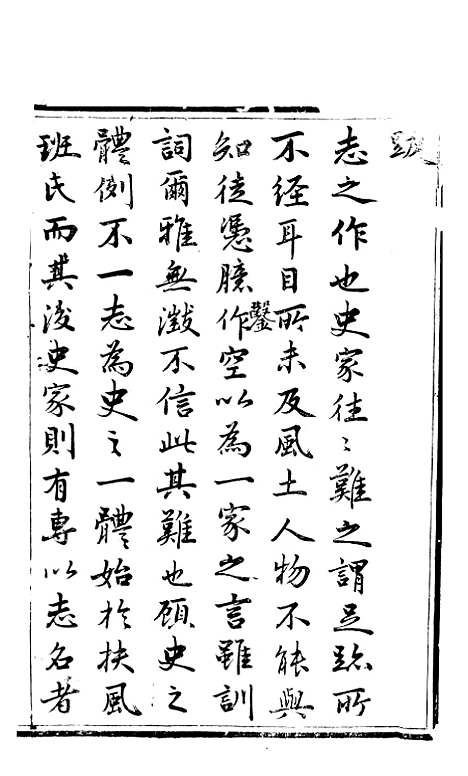 跋
志之作也史家往〻難之謂足跡所
不经耳目所未及風土人物不能與
知徒憑臆作鑿空以為一家之言雖訓
詞爾雅無徵不信此其難也顧史之
體例不一志為史之一體始於扶風
班氏而其後史家則有專以志名者